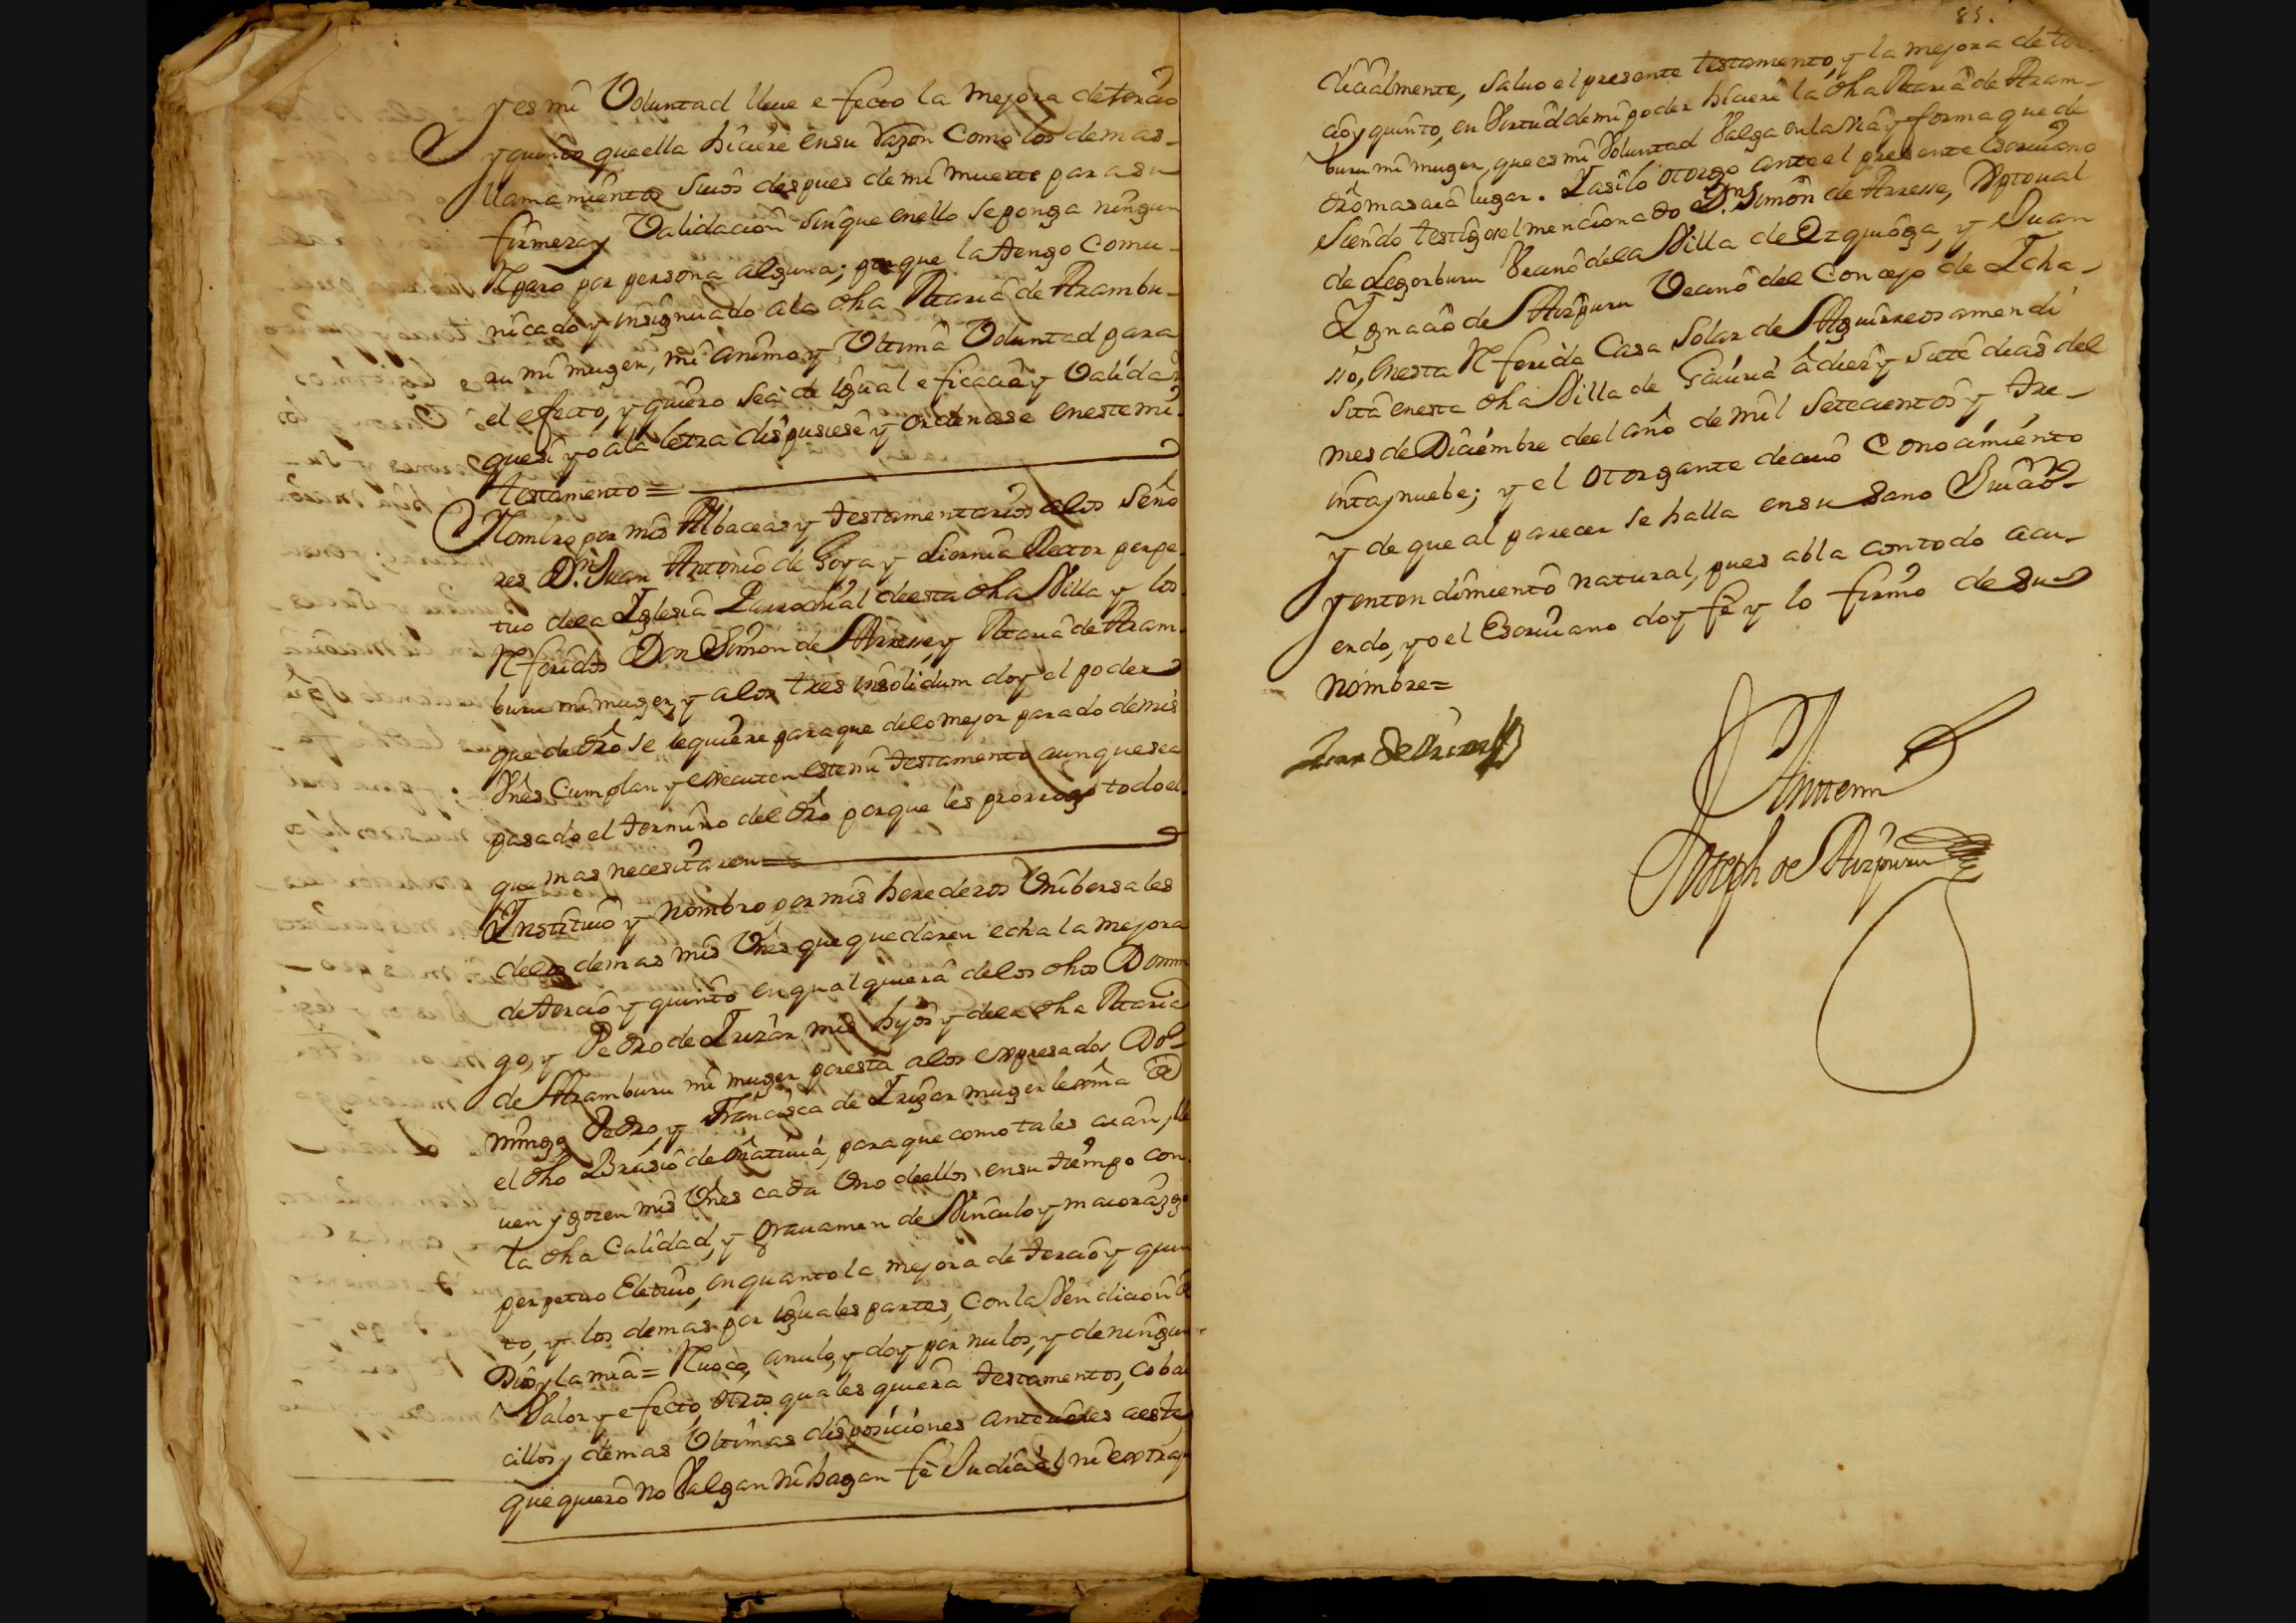 y es mi Voluntad lleue efecto la mejora de tercio
y quinto que ella hiciere en su razon Como los demas
llamamientos suios despues de mi muerte para su
firmeza y Validacion sin que en ello se ponga ningun
Reparo por persona alguna; porque la tengo Comu-
nicado y insignuado a la dha Maria de Arambu-
ru mi muger, mi animo y Vltima Voluntad para
el efecto, y quiero sea de igual eficacia y Valida
que si yo a la letra dispusiese y ordenasse en este mi
testamento =
Nombro por mis Albaceas y testamentarios a los Seño
res Dn. Juan Antonio de Goya y Liernia Rector perpe-
tuo de la Iglesia Parrochial de esta dha Villa y los
Referidos Don Simon de Arresse y Maria de Aram-
buru mi muger, y a los tres insolidum doy el poder
que de dro se requiere para que de lo mejor parado de mis
Vnes Cumplan y executen este mi testamento aunque sea
pasado el termino del dro porque les prorrogo todo el
que mas necesitaren =
Instituio y nombro por mis herederos Vnibersales
de los demas mis Vnes que quedaren echa la mejora
de tercio y quinto en qualquiera de los dhos Domin
go, y Pedro de Irizar mis hijos y de la dha Maria
de Aramburu mi muger por esta a los expresados Do-
mingo Pedro y Francisca de Irizar muger lexma de
el dho de para que como tales aian, lle
uen y gozen mis Vnes cada Vno de ellos en su tiempo con
la dha Calidad, y grauamen de Vinculo y maiorazgo
perpetuo Eletiuo, en quanto la mejora de tercio y quin
to, y los demas por iguales partes, Con la Vendicion de
Dios y la mia = Reuoco, anulo, y doy por nulos, y de ningun
Valor y efecto otros quales quiera testamentos, cobdi
cillos y demas Vltimas disposiciones anteriores a este,
que quiero no Valgan ni hagan fe Judicial ni extraju
85.
dicialmente, saluo el presente testamento, y la mejora de ter-
cio y quinto, en Virtud de mi poder hiciere la dha Maria de Aram-
buru mi muger, que es mi Voluntad Valga en la Via y forma que de
dro mas aia lugar. I asi lo otorgo ante el presente Escriuano
siendo testigos el mencionado Dn. Simon de Arresse,
de Legorburu Vecino de la Villa de Ezquioga, y Juan
Ignacio de Aizpuru Vecino del Concejo de Icha-
sso, en esta Referida Casa Solar de Aguirreosamendi
sita en esta dha Villa de Gauiria a diez y siete dias del
mes de Diciembre de el año de mil setecientos y tre-
inta y nuebe; y el otorgante de cuio Conocimiento
y de que al parecer se halla en su sano Juicio
y entendimiento natural, pues abla con todo acu-
erdo, yo el Escriuano doy fe y lo firmo de su
nombre =
Juan de Irizar
Ante mi
Joseph de Aizpuru